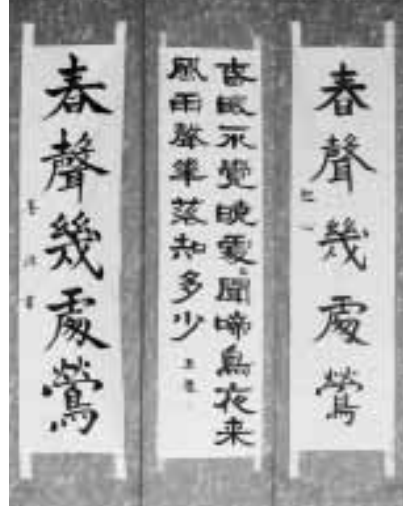 春聲幾處鶯
春眠不覺曉處々聞啼鳥夜来
風雨聲華落知多少
春聲幾處鶯